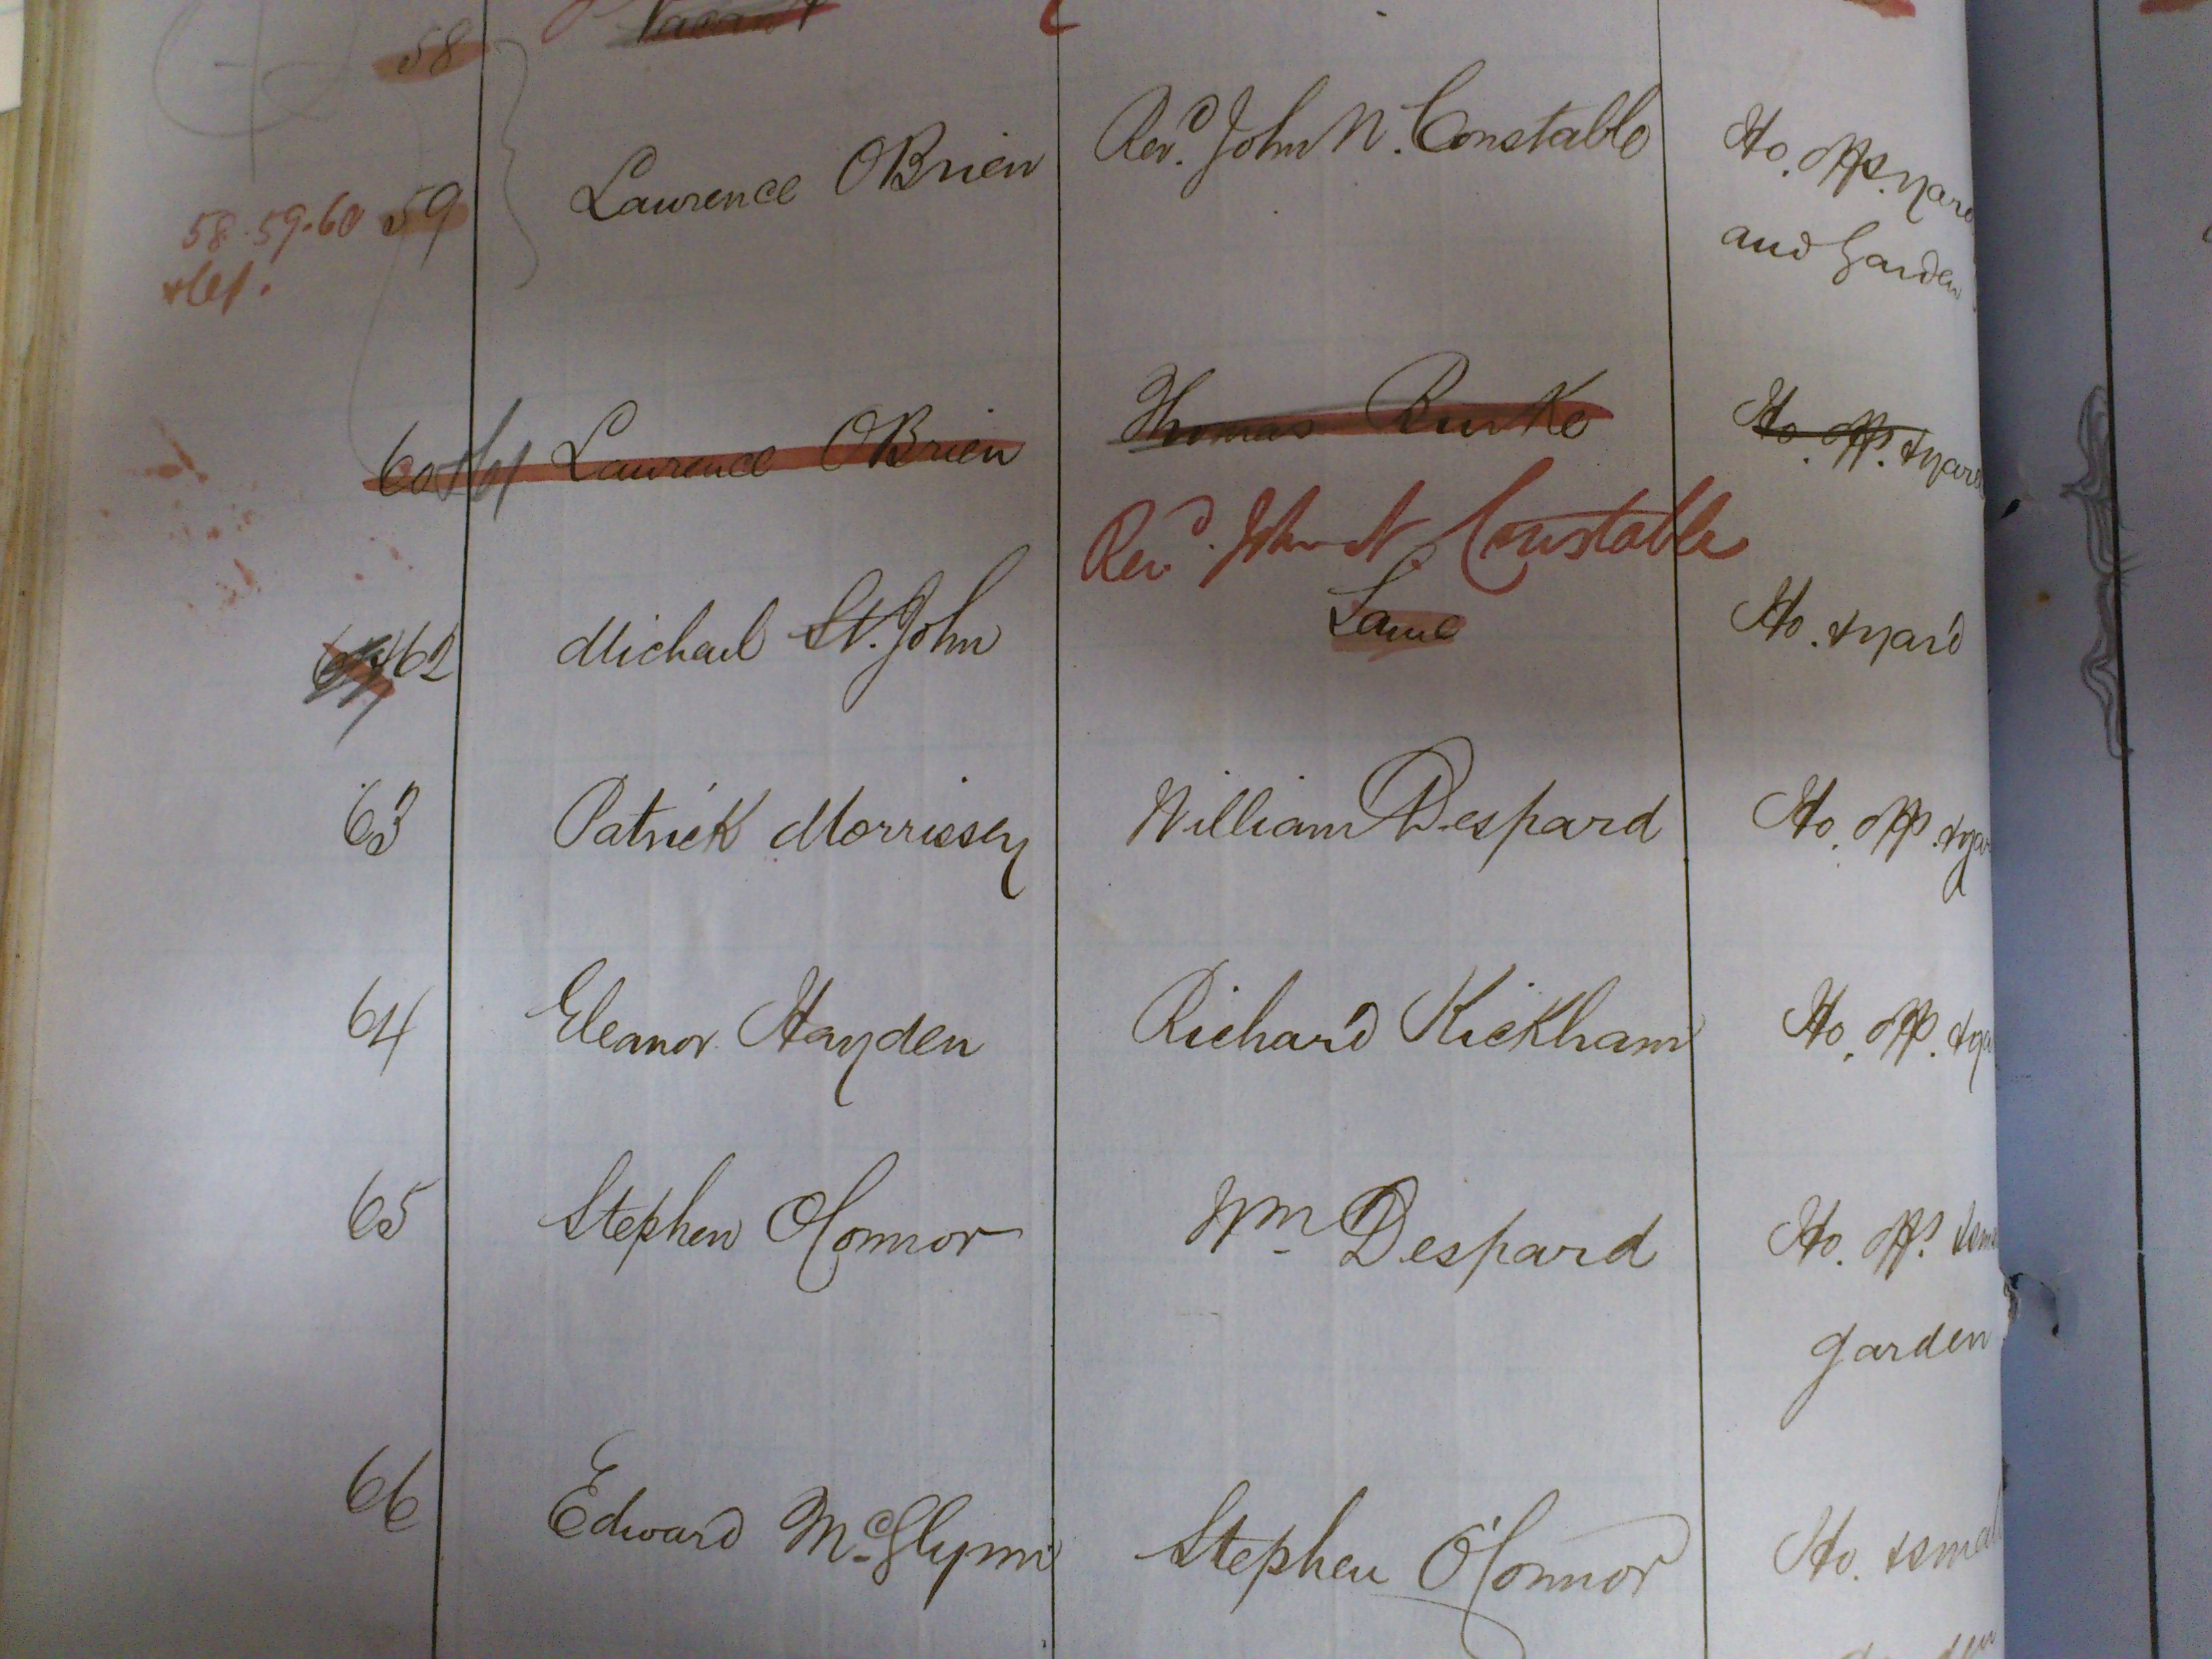 58 Vacant
Lawrence OBrien Revd. John N. Constable Ho. offs. yard
58.59.60 59 and Garden
60 Lawrence OBrien Thomas Burke Ho. offs. & yard
Revd. John N. Constable
62 Michael St. John Same Ho. & yard
63 Patrick Morrissey William Despard Ho. off. & ya
64 Eleanor Hayden Richard Kickham Ho. off. & ya
65 Stephen OConnor Wm Despard Ho. offs. & sma
garden
66 Edward McGlynn Stephen O'Connor Ho. & small